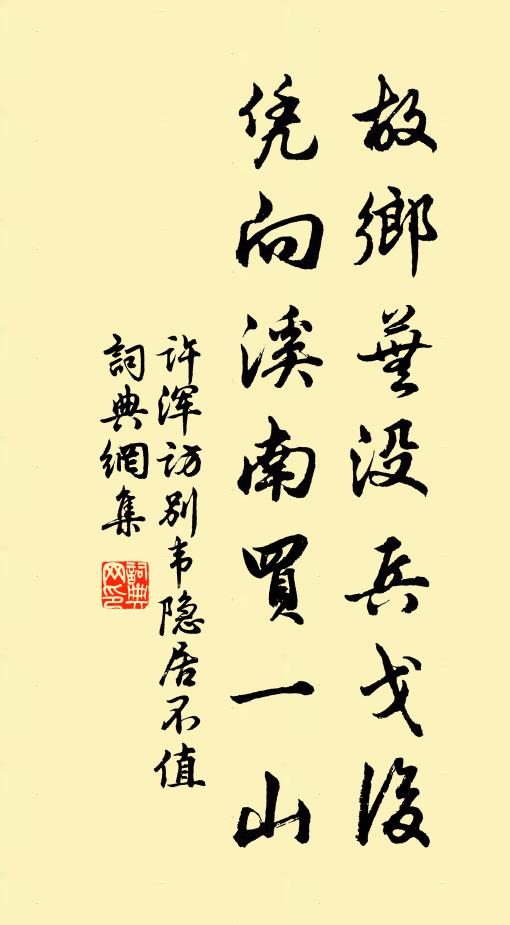 故鄉蕪没兵戈後
凭向溪南買一山
许渾访别韦隐居不值
詞典網集
詞典
网印